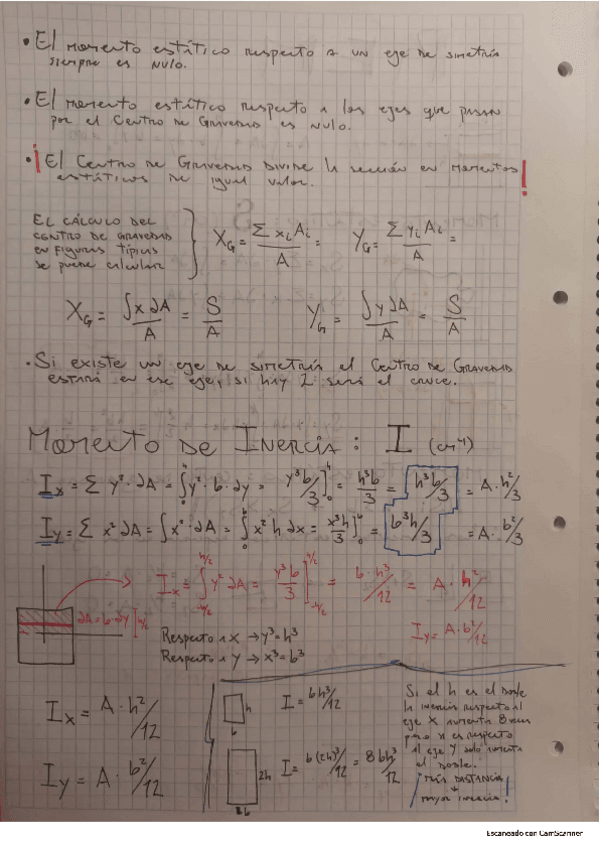 • El momento estático respecto a un eje de simetría
siempre es nulo.
• El momento estático respecto a los ejes que pasan
por el Centro de Gravedad es nulo.
• ¡El Centro de Gravedad divide la sección en momentos
estáticos de igual valor. !
El cálculo del
centro de gravedad
en figuras típicas
se puede calcular
X_G = Σ x_i A_i / A = Y_G = Σ y_i A_i / A =
X_G = ∫x ∂A / A = S / A Y_G = ∫y ∂A / A = S / A
• Si existe un eje de simetría el Centro de Gravedad
estará en ese eje, si hay 2 será el cruce.
Momento de Inercia : I (cm⁴)
I_x = Σ y² · ∂A = ∫₀ʰ y² · b · ∂y = y³b/3 ]₀ʰ = h³b/3 = h³b/3 = A · h²/3
I_y = Σ x² ∂A = ∫x² · ∂A = ∫₀ᵇ x² h ∂x = x³h/3 ]₀ᵇ = b³h/3 = A · b²/3
I_x = ∫ y² ∂A = y³b/3 ] = b · h³/12 = A · h²/12
h/2
-h/2
h/2
-h/2
∂A = b · ∂y ] h/2
I_y = A · b²/12
Respecto a X → y³ = h³
Respecto a Y → x³ = b³
I_x = A · h²/12
I_y = A · b²/12
h
b
I = bh³/12
2h
b
I = b(2h)³/12 = 8bh³/12
Si el h es el doble
la inercia respecto al
eje X aumenta 8 veces
pero si es respecto
al eje Y solo aumenta
el doble.
¡ más distancia
↓
mayor inercia. !
Escaneado con CamScanner